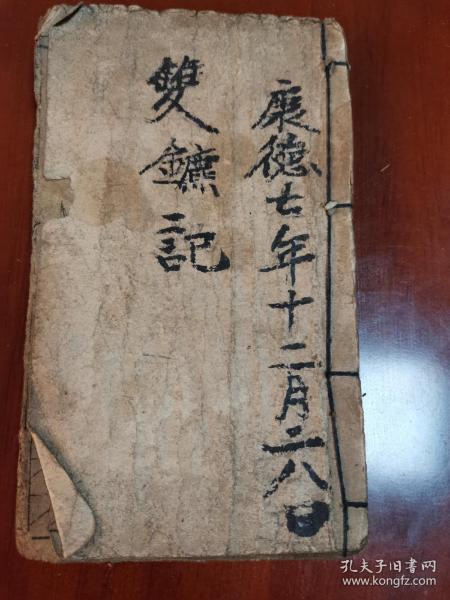 康德七年十二月二八日
雙鑣記
孔夫子旧书网
www.kongfz.com